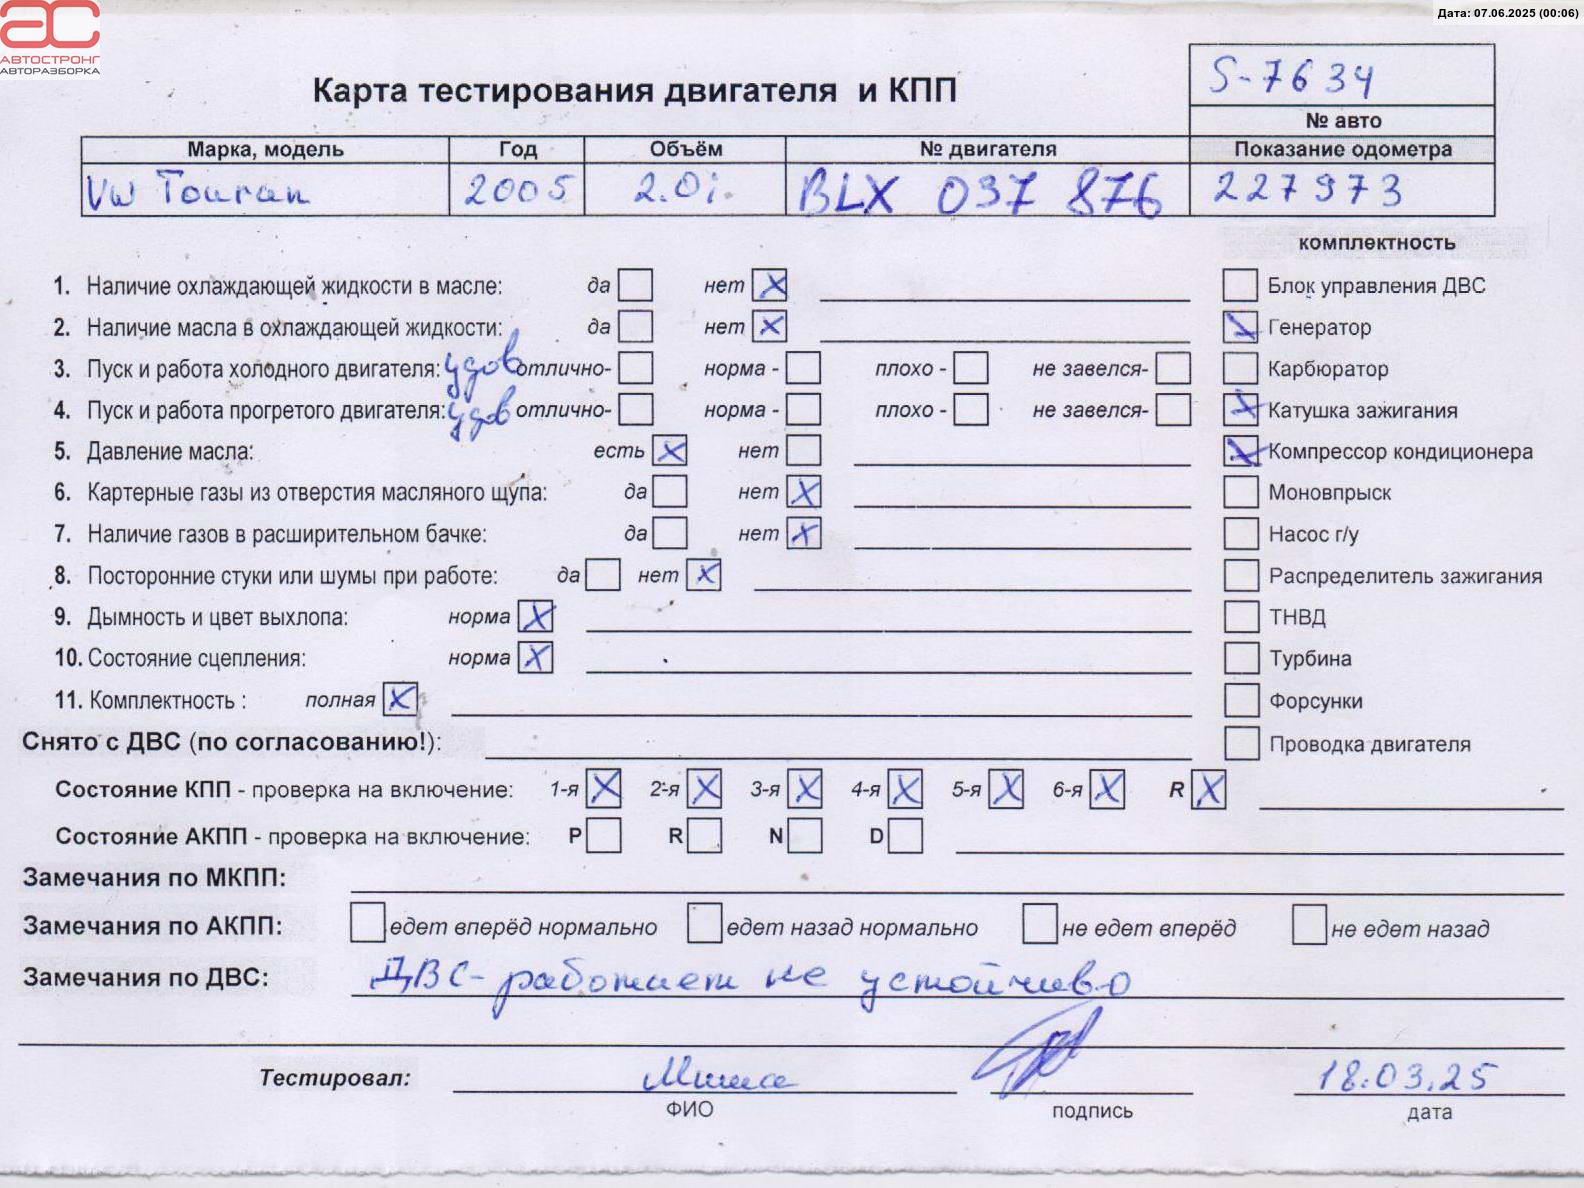 Дата: 07.06.2025 (00:06)
АС
АВТОСТРОНГ
АВТОРАЗБОРКА
S-7634
Карта тестирования двигателя и КПП
№ авто
Марка, модель Год Объём № двигателя Показание одометра
VW Touran 2005 2.0i. BLX 037 876 227973
комплектность
1. Наличие охлаждающей жидкости в масле: да нет X Блок управления ДВС
2. Наличие масла в охлаждающей жидкости: да нет X Генератор X
3. Пуск и работа холодного двигателя: удов отлично- норма - плохо - не завелся- Карбюратор
4. Пуск и работа прогретого двигателя: удов отлично- норма - плохо - не завелся- X Катушка зажигания
5. Давление масла: есть X нет X Компрессор кондиционера
6. Картерные газы из отверстия масляного щупа: да нет X Моновпрыск
7. Наличие газов в расширительном бачке: да нет X Насос г/у
8. Посторонние стуки или шумы при работе: да нет X Распределитель зажигания
9. Дымность и цвет выхлопа: норма X ТНВД
10. Состояние сцепления: норма X Турбина
11. Комплектность : полная X Форсунки
Снято с ДВС (по согласованию!): Проводка двигателя
Состояние КПП - проверка на включение: 1-я X 2-я X 3-я X 4-я X 5-я X 6-я X R X
Состояние АКПП - проверка на включение: P R N D
Замечания по МКПП:
Замечания по АКПП: едет вперёд нормально едет назад нормально не едет вперёд не едет назад
Замечания по ДВС: ДВС - работает не устойчиво
Тестировал: Миша 18.03.25
ФИО подпись дата